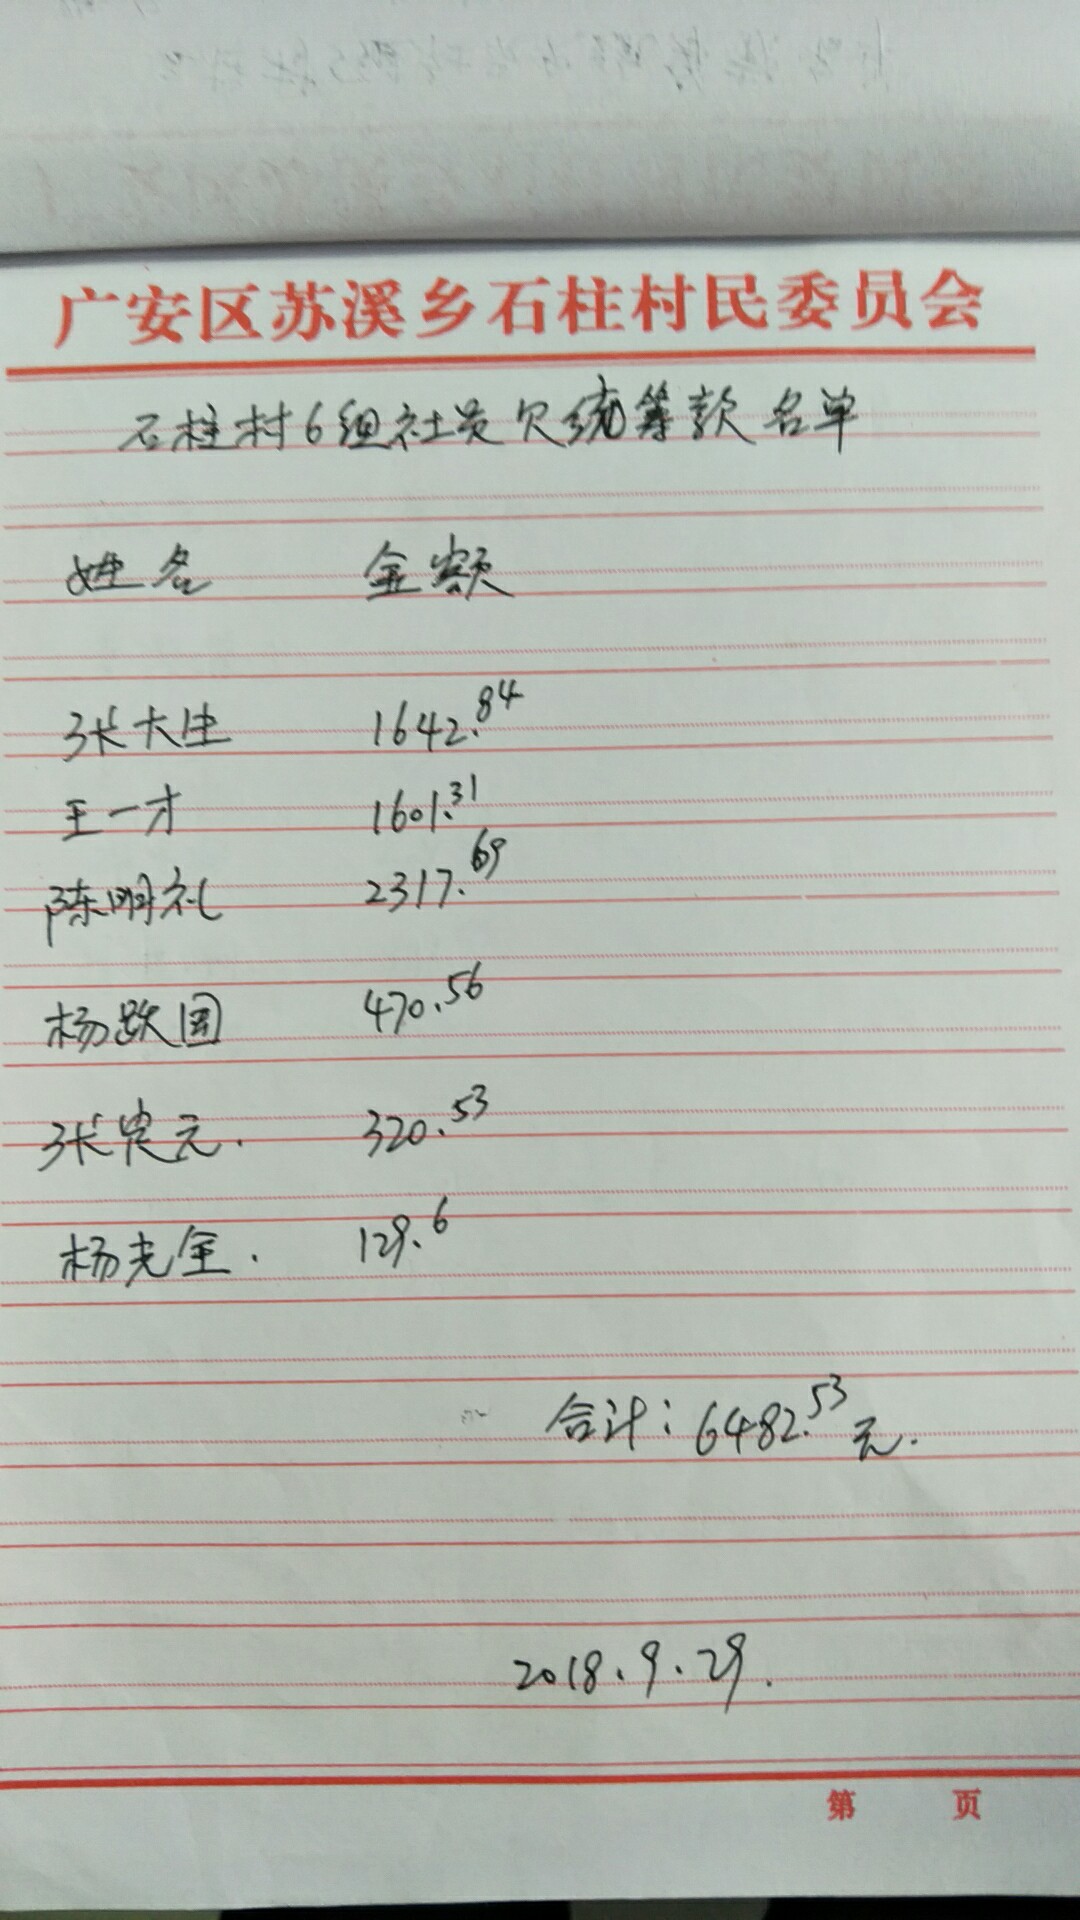 广安区苏溪乡石柱村民委员会
石柱村6组社员欠统筹款名单
姓名 金额
张大生 1642.84
王一才 1601.31
陈明礼 2317.69
杨跃国 470.56
张 元. 320.53
杨光全. 129.6
合计: 6482.53元.
2018.9.29.
第 页